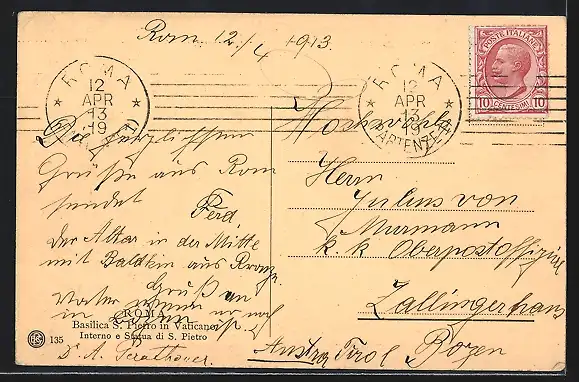 Rom 12/4 1913.
ROMA
12
APR
13
19
ROMA
12
APR
13
19
POSTE ITALIANE
10 CENTESIMI 10
Die herzlichsten
Grüße aus Rom
sendet
Ferd.
Der Altar in der Mitte
mit Baldkin aus Bronze.
Gruß an
Vater
in
ROMA
Basilica S. Pietro in Vaticano
Interno e Statua di S. Pietro
135
Dr. A.
Hochwohlg.
Herrn
Julius von
Murmann
k. k. Oberpostoffizial
Zallingerhaus
Bozen
Austria Tirol